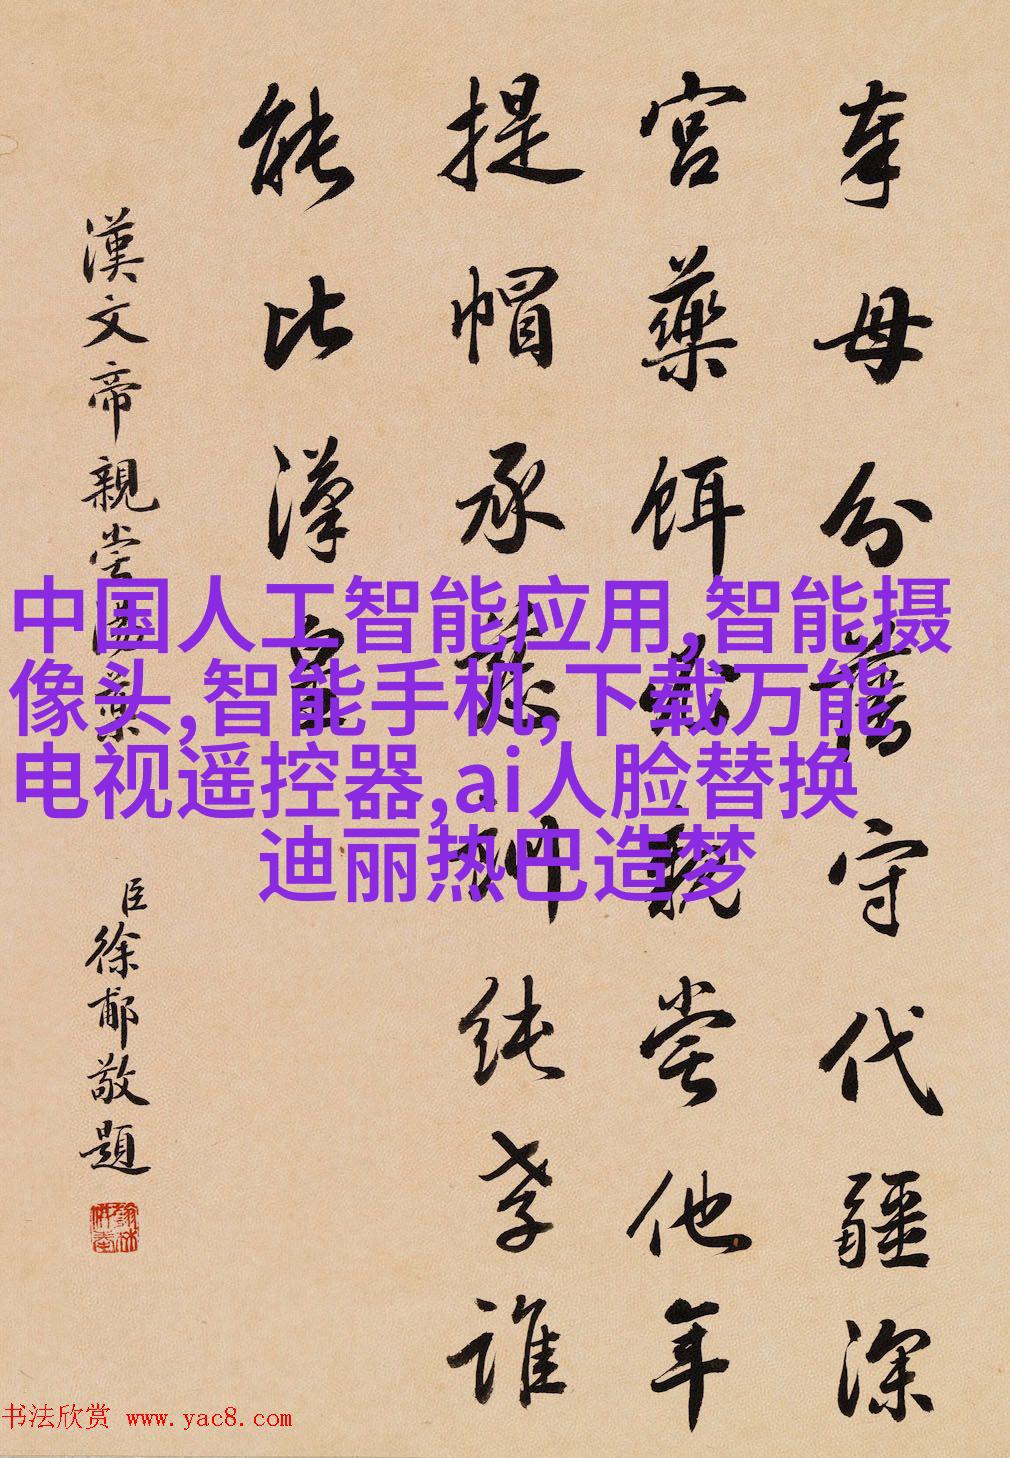 奉母分藩守代疆深
宮藥餌親嘗他年
提帽承慈訓純孝誰
能比漢皇
漢文帝親嘗湯藥
臣徐郙敬題
中国人工智能应用,智能摄
像头,智能手机,下载万能
电视遥控器,ai人脸替换
迪丽热巴造梦
书法欣赏 www.yac8.com